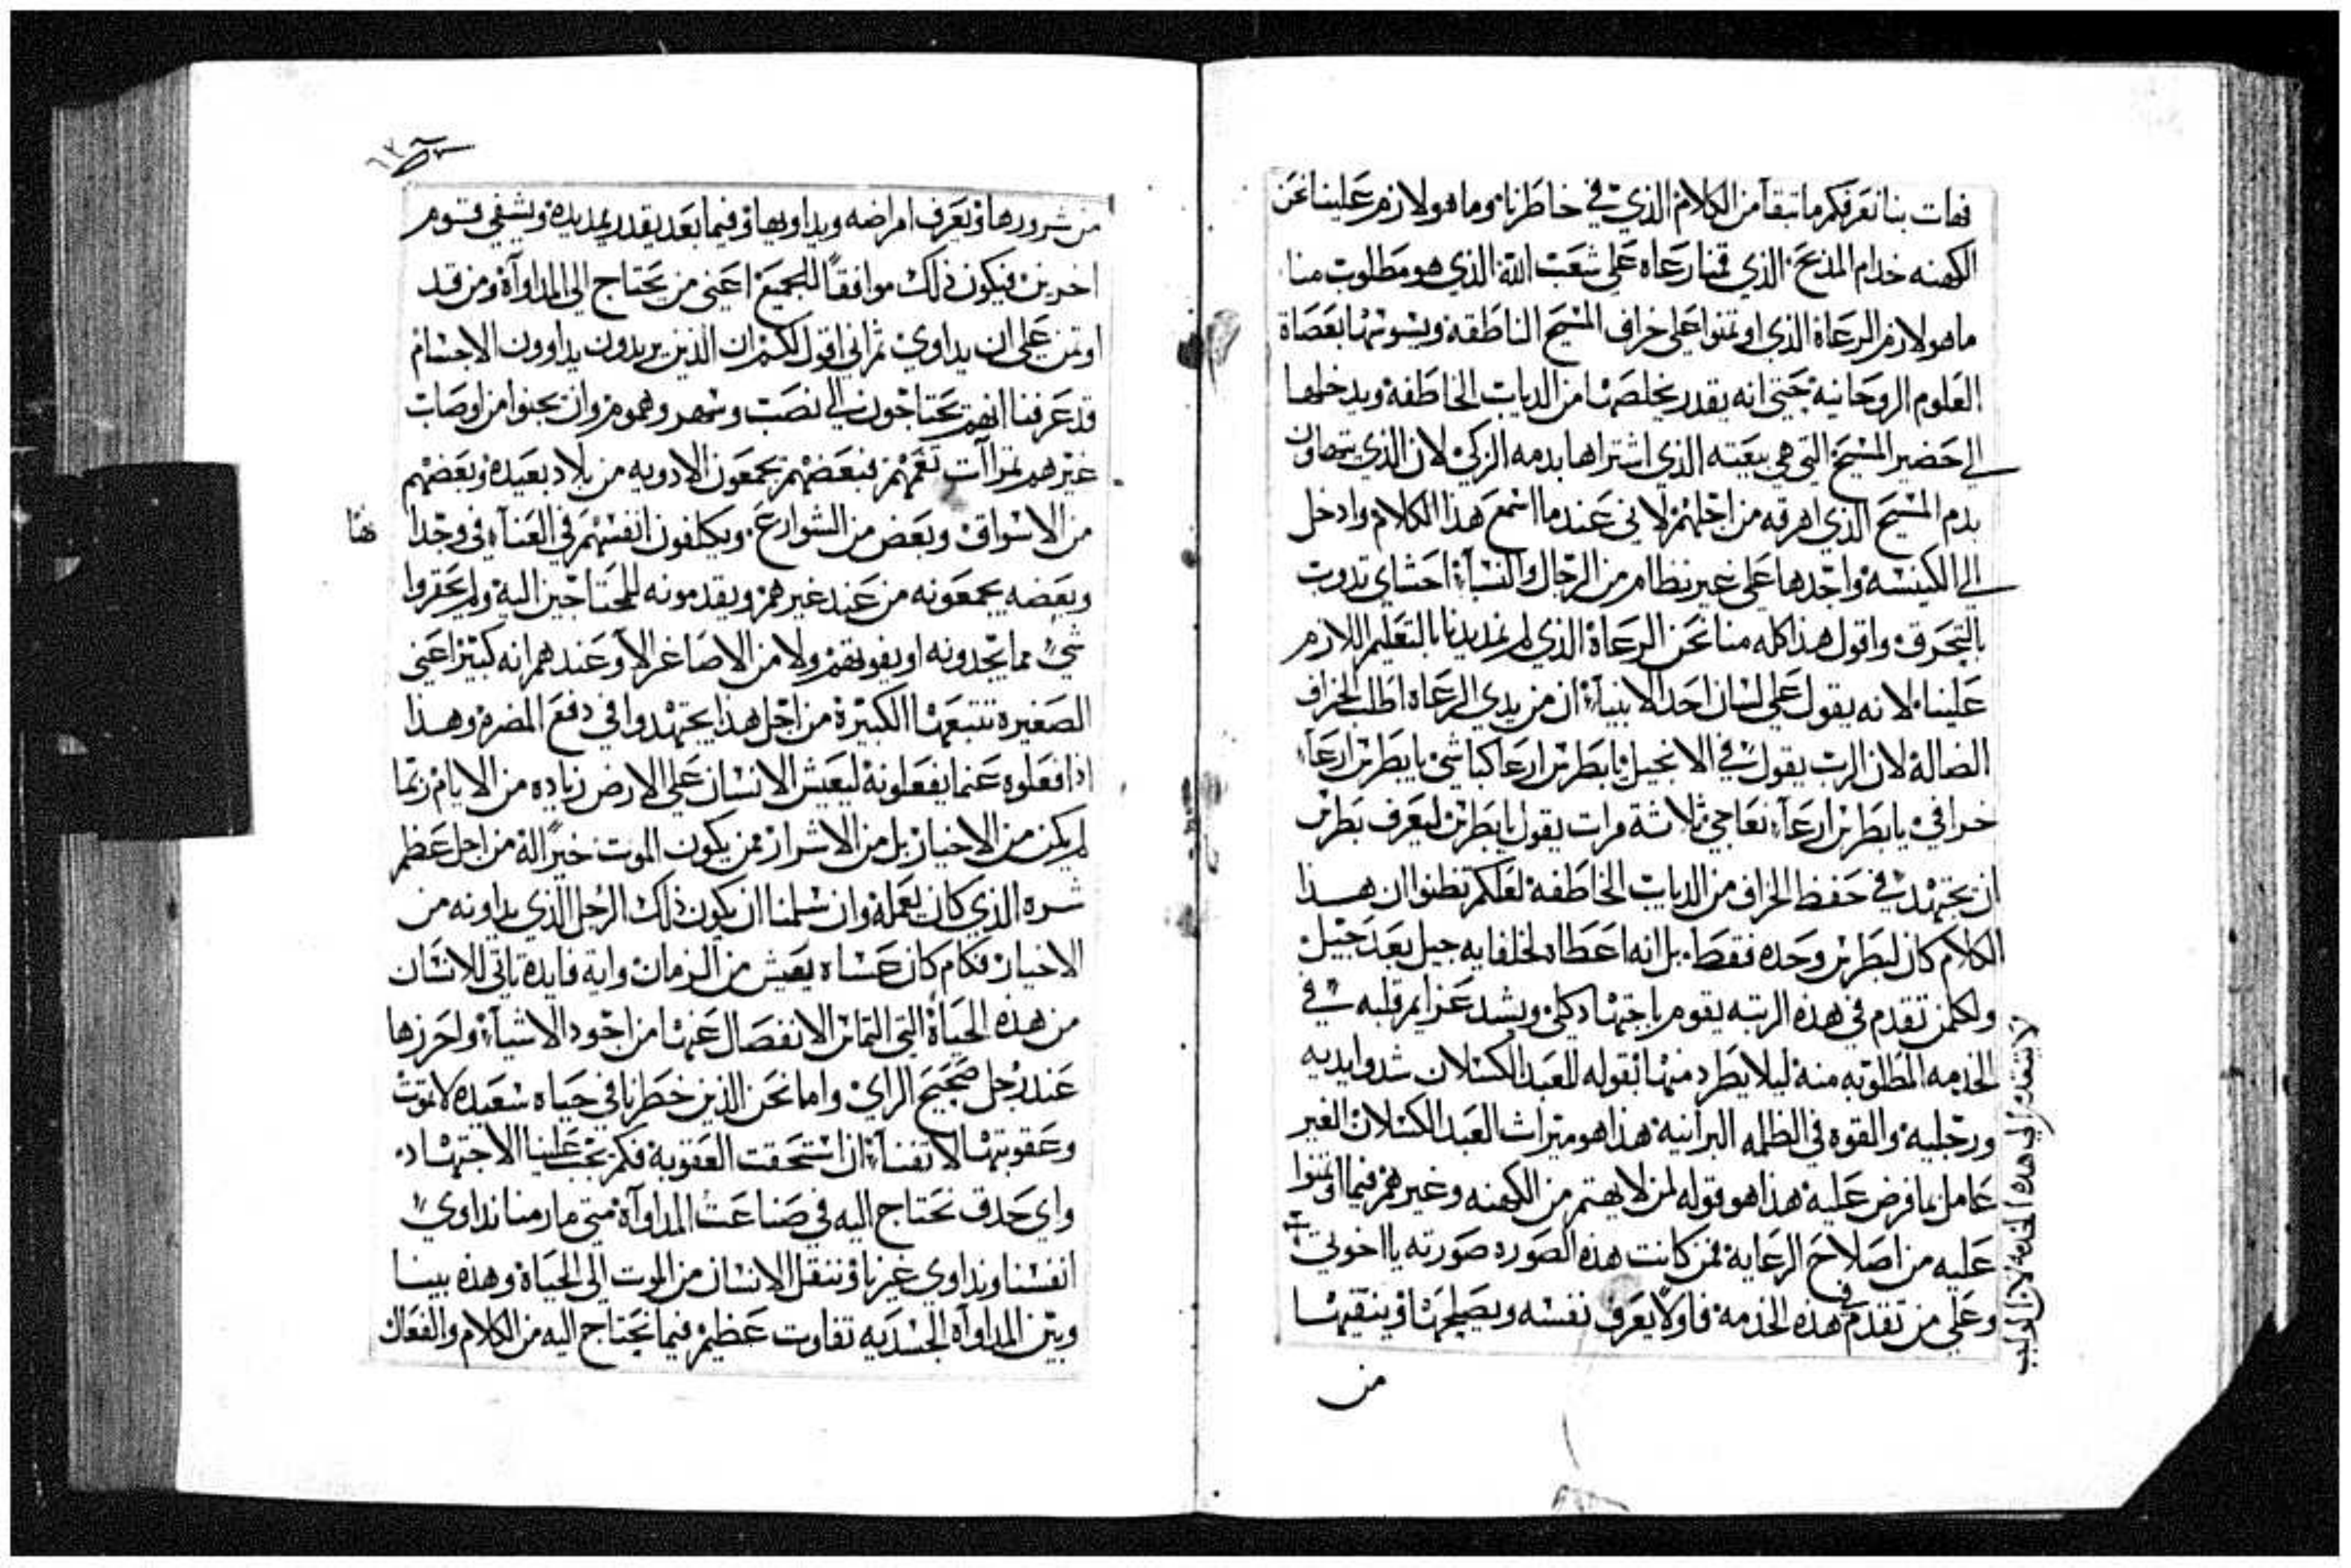 فهات بنا نعرفكم ما تبقا من الكلام الذي في خاطرنا وما هو لازم علينا نحن
الكهنه خدام المذبح الذي قمنا رعاه على شعب الله الذي هو مطلوب منا
ما هو لازم الرعاة الذي اوتمنوا على خراف المسيح الناطقه ويسوسها بعصاة
العلوم الروحانية حتى انه يقدر يخلصها من الدياب الخاطفه ويدخلها
الى حضير المسيح التي هي بيعته الذي اشتراها بدمه الزكي لان الذي يتهاون
بدم المسيح الذي اهرقه من اجلهم لاني عندما اسمع هذا الكلام وادخل
الى الكنيسه واجدها على غير نظام من الرجال والنساء احشاي تدوب
بالتحرق واقول هذا كله منا نحن الرعاة الذي لم نمد يدنا بالتعليم اللازم
علينا لانه يقول على لسان احد الانبياء ان من يدي الرعاه اطلب الخراف
الضالة لان الرب يقول في الانجيل يا بطرس ارعا كباشي يا بطرس ارعا
خرافي يا بطرس ارعا نعاجي ثلاثة مرات يقول يا بطرس ليعرف بطرس
ان يجتهد في حفظ الخراف من الدياب الخاطفه لعلكم تظنوا ان هذا
الكلام كان لبطرس وحده فقط بل انه اعطاه لخلفايه جيل بعد جيل
ولكلمن تقدم في هذه الرتبه يقوم باجتهاد كلي ويشد عزايم قلبه في
الخدمه المطلوبه منه ليلا يطرد منها بقوله للعبد الكسلان شدوا يديه
ورجليه والقوه في الظلمه البرانيه هذا هو ميراث العبد الكسلان الغير
عامل بما فرض عليه هذا هو قوله لمن لا يهتم من الكهنه وغيرهم فيما اوتمنوا
عليه من اصلاح الرعايه فمن كانت هذه الصوره صورته يا اخوتي
وعلى من تقدم في هذه الخدمه فاولا يعرف نفسه ويصلحها وينقيها
لا يتقدم الى هذه الخدمة لان الواجب
من
من شرورها ويعرف امراضه ويداويها وفيما بعد يقدر يمد يده ويشفي قوم
اخرين فيكون ذلك موافقا للجميع اعني من يحتاج الى المداواة ومن قد
اوتمن على ان يداوي ثم اني اقول لكم ان الذين يريدون يداوون الاجسام
قد عرفنا انهم يحتاجون الى نصب وسهر وهموم وان يجنوا من اوصاب
غيرهم ثمراآت تغمهم فبعضهم يجمعون الادويه من بلاد بعيده وبعضهم
من الاسواق وبعض من الشوارع ويكلفون انفسهم في العناء في وجدا
وبعضه يجمعونه من عند غيرهم ويقدمونه للمحتاجين اليه ولم يحقروا
شي مما يجدونه او يفوتهم ولا من الاصاغر الا وعندهم انه كبير اعني
الصغيره تتبعها الكبيرة من اجل هذا يجتهدوا في دفع المضره وهذا
اذا فعلوه عندما يفعلونه ليعيش الانسان على الارض زياده من الايام ربما
لم يكن من الاخيار بل من الاشرار ممن يكون الموت خيرا له من اجل عظم
شره الذي كان يعمله وان سلمنا ان يكون ذلك الرجل الذي يداونه من
الاخيار فكام كان عساه يعيش من الزمان واية فايدة تاتي للانسان
من هذه الحياة التي التماس الانفصال عنها من اجود الاشياء واحرزها
عند رجل صحيح الراي واما نحن الذين خطرنا في حياه سعيده لا تموت
وعقوبتها لا تفنا ان استحقت العقوبة فكم يجب علينا الاجتهاد
واي حدق نحتاج اليه في صناعت المداواة متى ما رمنا نداوي
انفسنا ونداوي غيرنا وننقل الانسان من الموت الى الحياة وهذه بينا
وبين المداواه الجسديه تفاوت عظيم فيما نحتاج اليه من الكلام والفعال